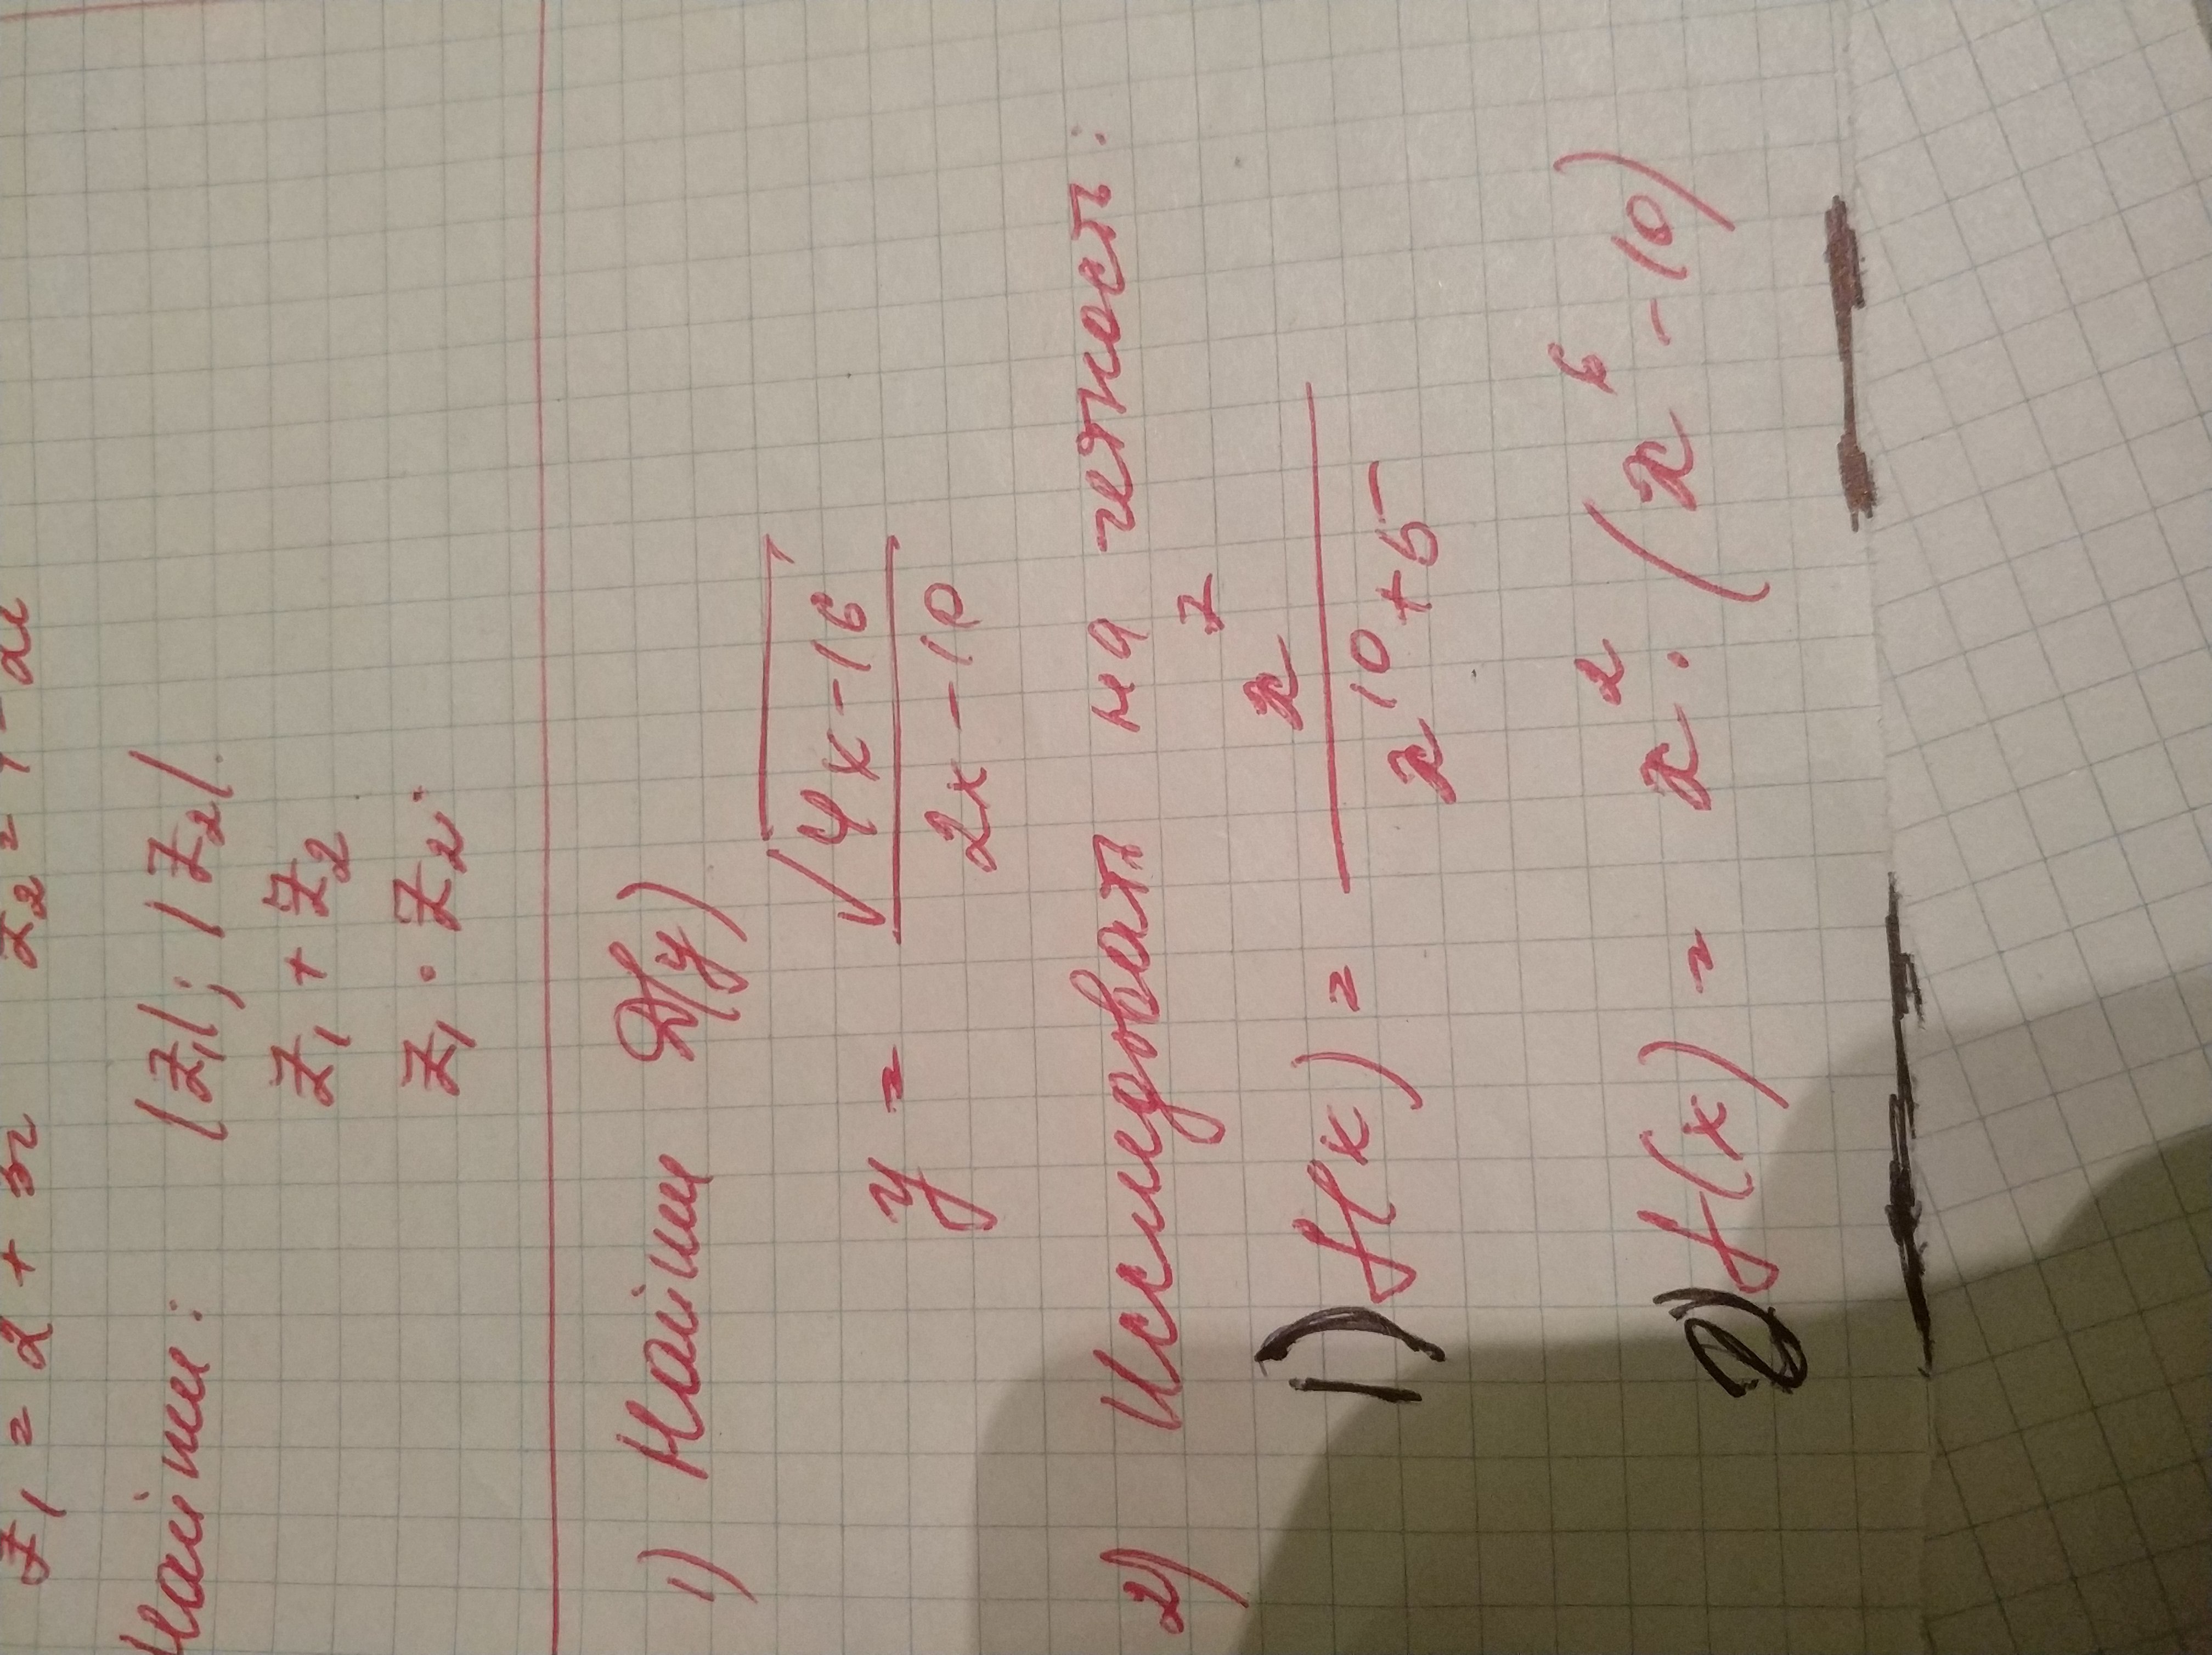 z₁ = 2 + 3i z₂ =
Найти: |z₁|; |z₂|.
z₁ + z₂
z₁ · z₂.
1) Найти D(y)
y = √(4x-16) / (2x-10)
2) Исследовать на четность:
1) f(x) = x⁷ / (x¹⁰+5)
2) f(x) = x² · (x⁶-10)